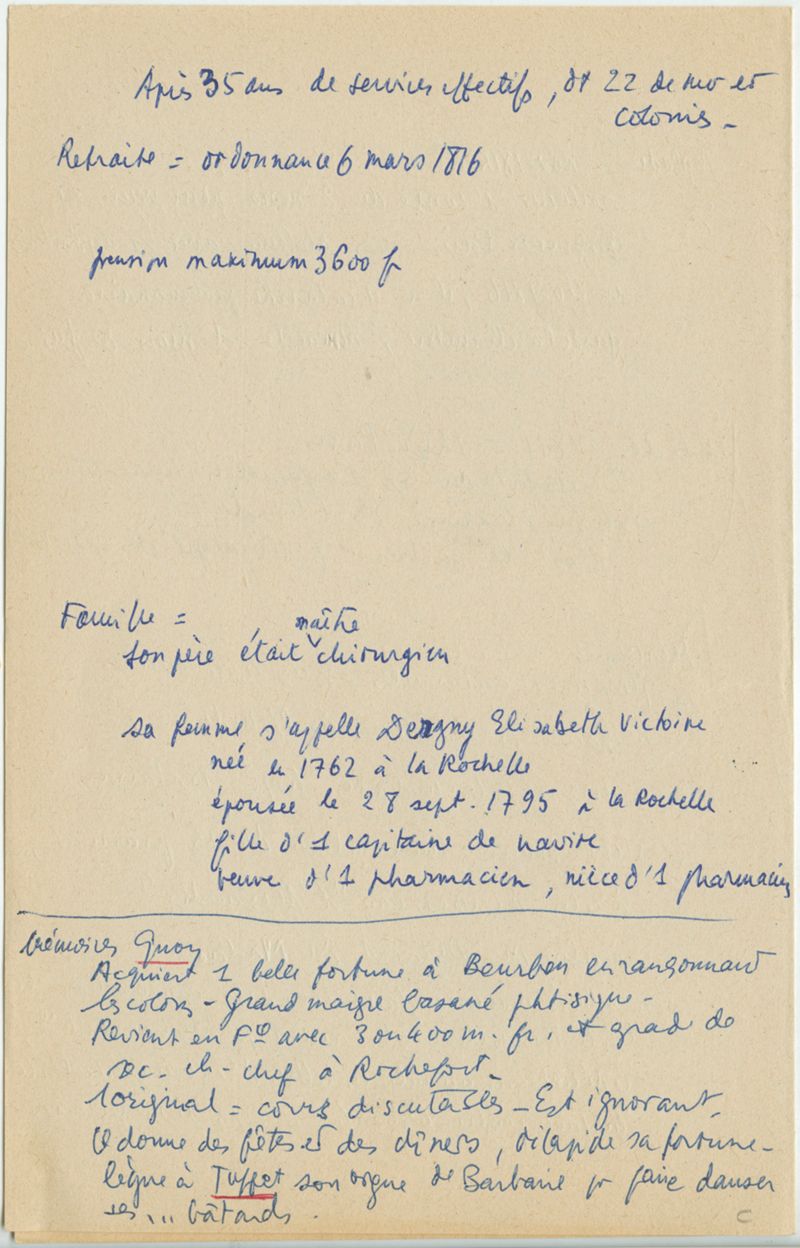 Après 35 ans de services effectifs, dt 22 de mer et
colonies -
Retraite = ordonnance 6 mars 1816
pension maximum 3600 f
Famille =
maître
son père était chirurgien
sa femme s'appelle Elisabeth Victoire
née en 1762 à la Rochelle
épousée le 28 sept. 1795 à la Rochelle
fille d'1 capitaine de navire
veuve d'1 pharmacien, nièce d'1 pharmacien
Mémoires Quoy
Acquiert 1 belle fortune à Bourbon en rançonnant
les colons - Grand maigre basané phtisique -
Revient en Fce avec 3 ou 400 m. fr. et grade de
ch - chef à Rochefort -
1 original = cours discutables - Est ignorant.
donne des fêtes et des dîners, dilapide sa fortune -
lègue à Tuffet son orgue de Barbarie pr faire danser
ses ... bâtards.
C